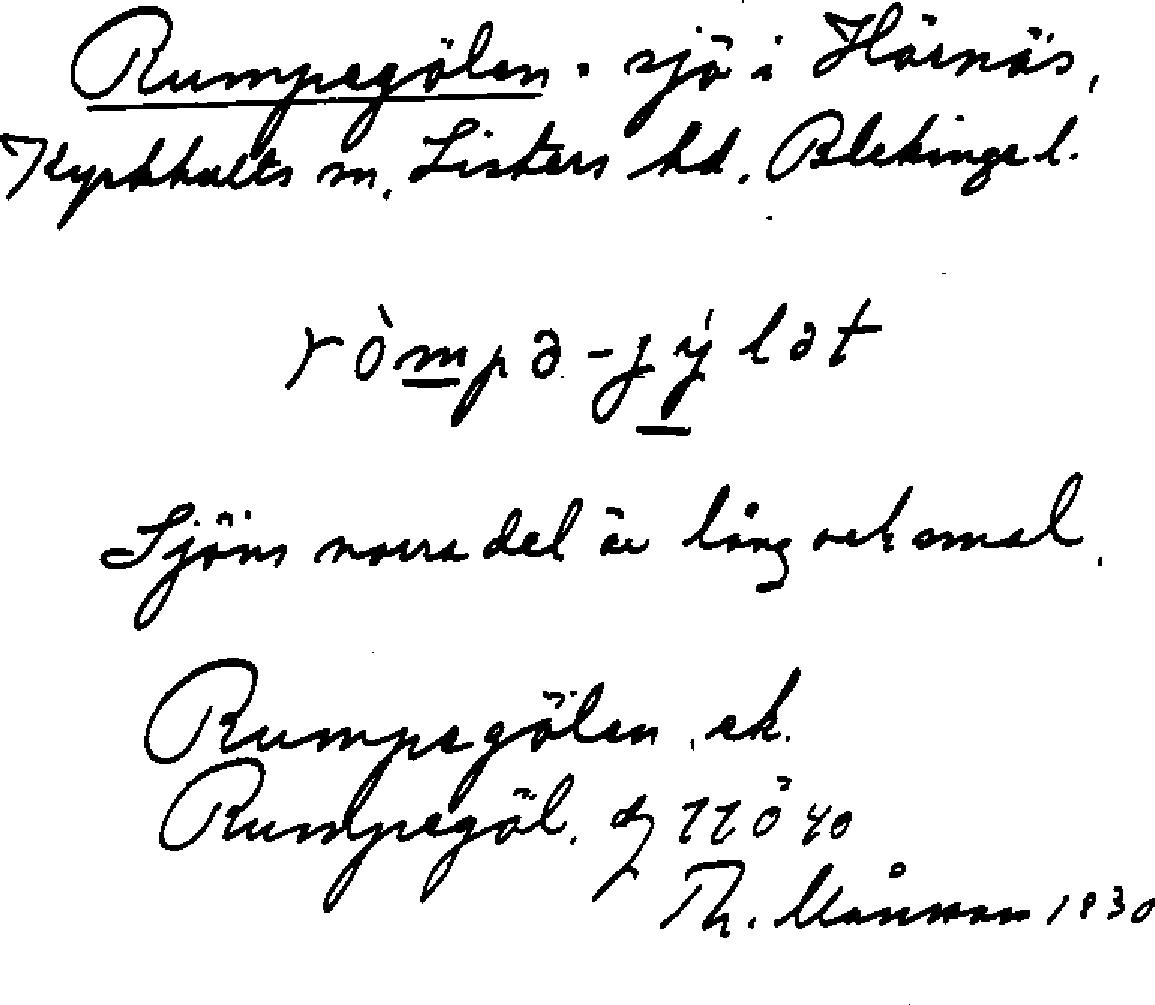 Rumpegölen. sjö i Hörnäs,
Kyrkhults sn, Listers hd, Blekinge l.
ròmpə-jýlət
Sjöns norra del är lång och smal.
Rumpegölen, ek.
Rumpegöl. 11 ö 40
Th. Månsson 1930